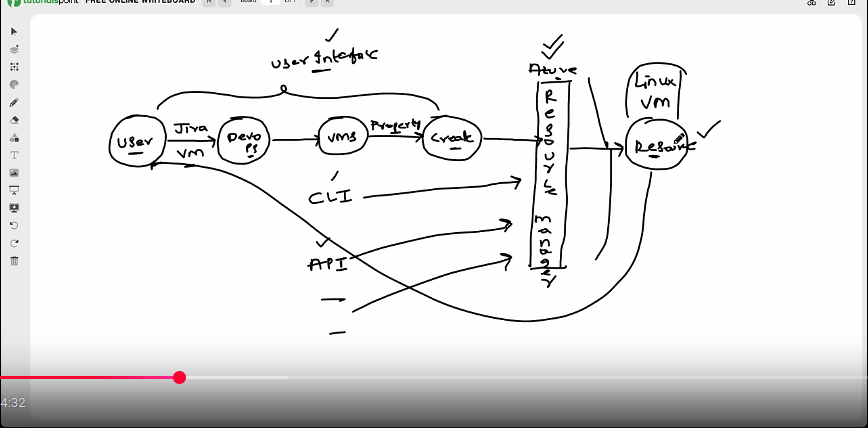 tutorialspoint FREE ONLINE WHITEBOARD
User Interface
User
Jira
VM
Devo
Ps
VMs
Property
Create
CLI
API
Azure
Resource
Manager
Linux
VM
Resource
4:32